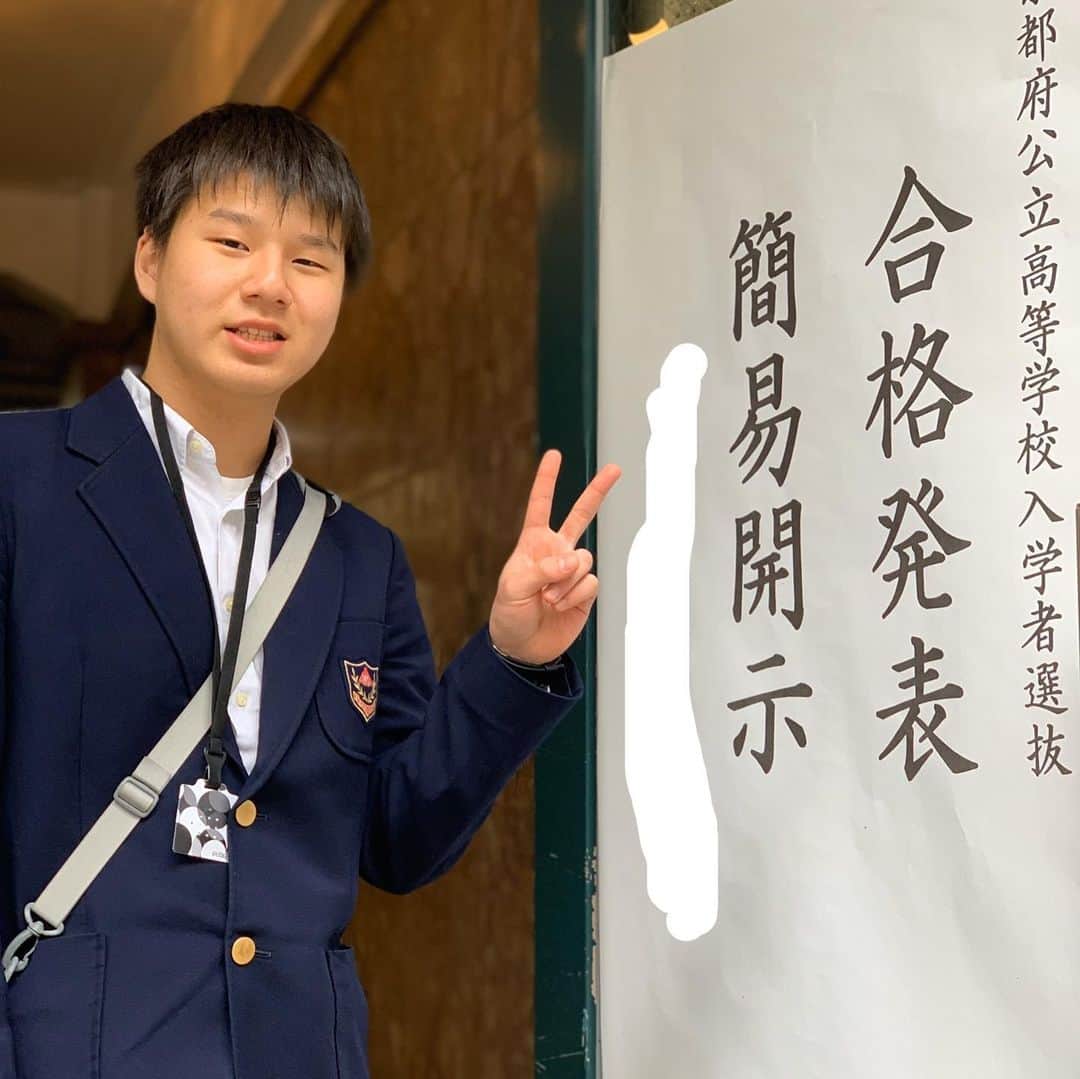 都府公立高等学校入学者選抜
合格発表
簡易開示